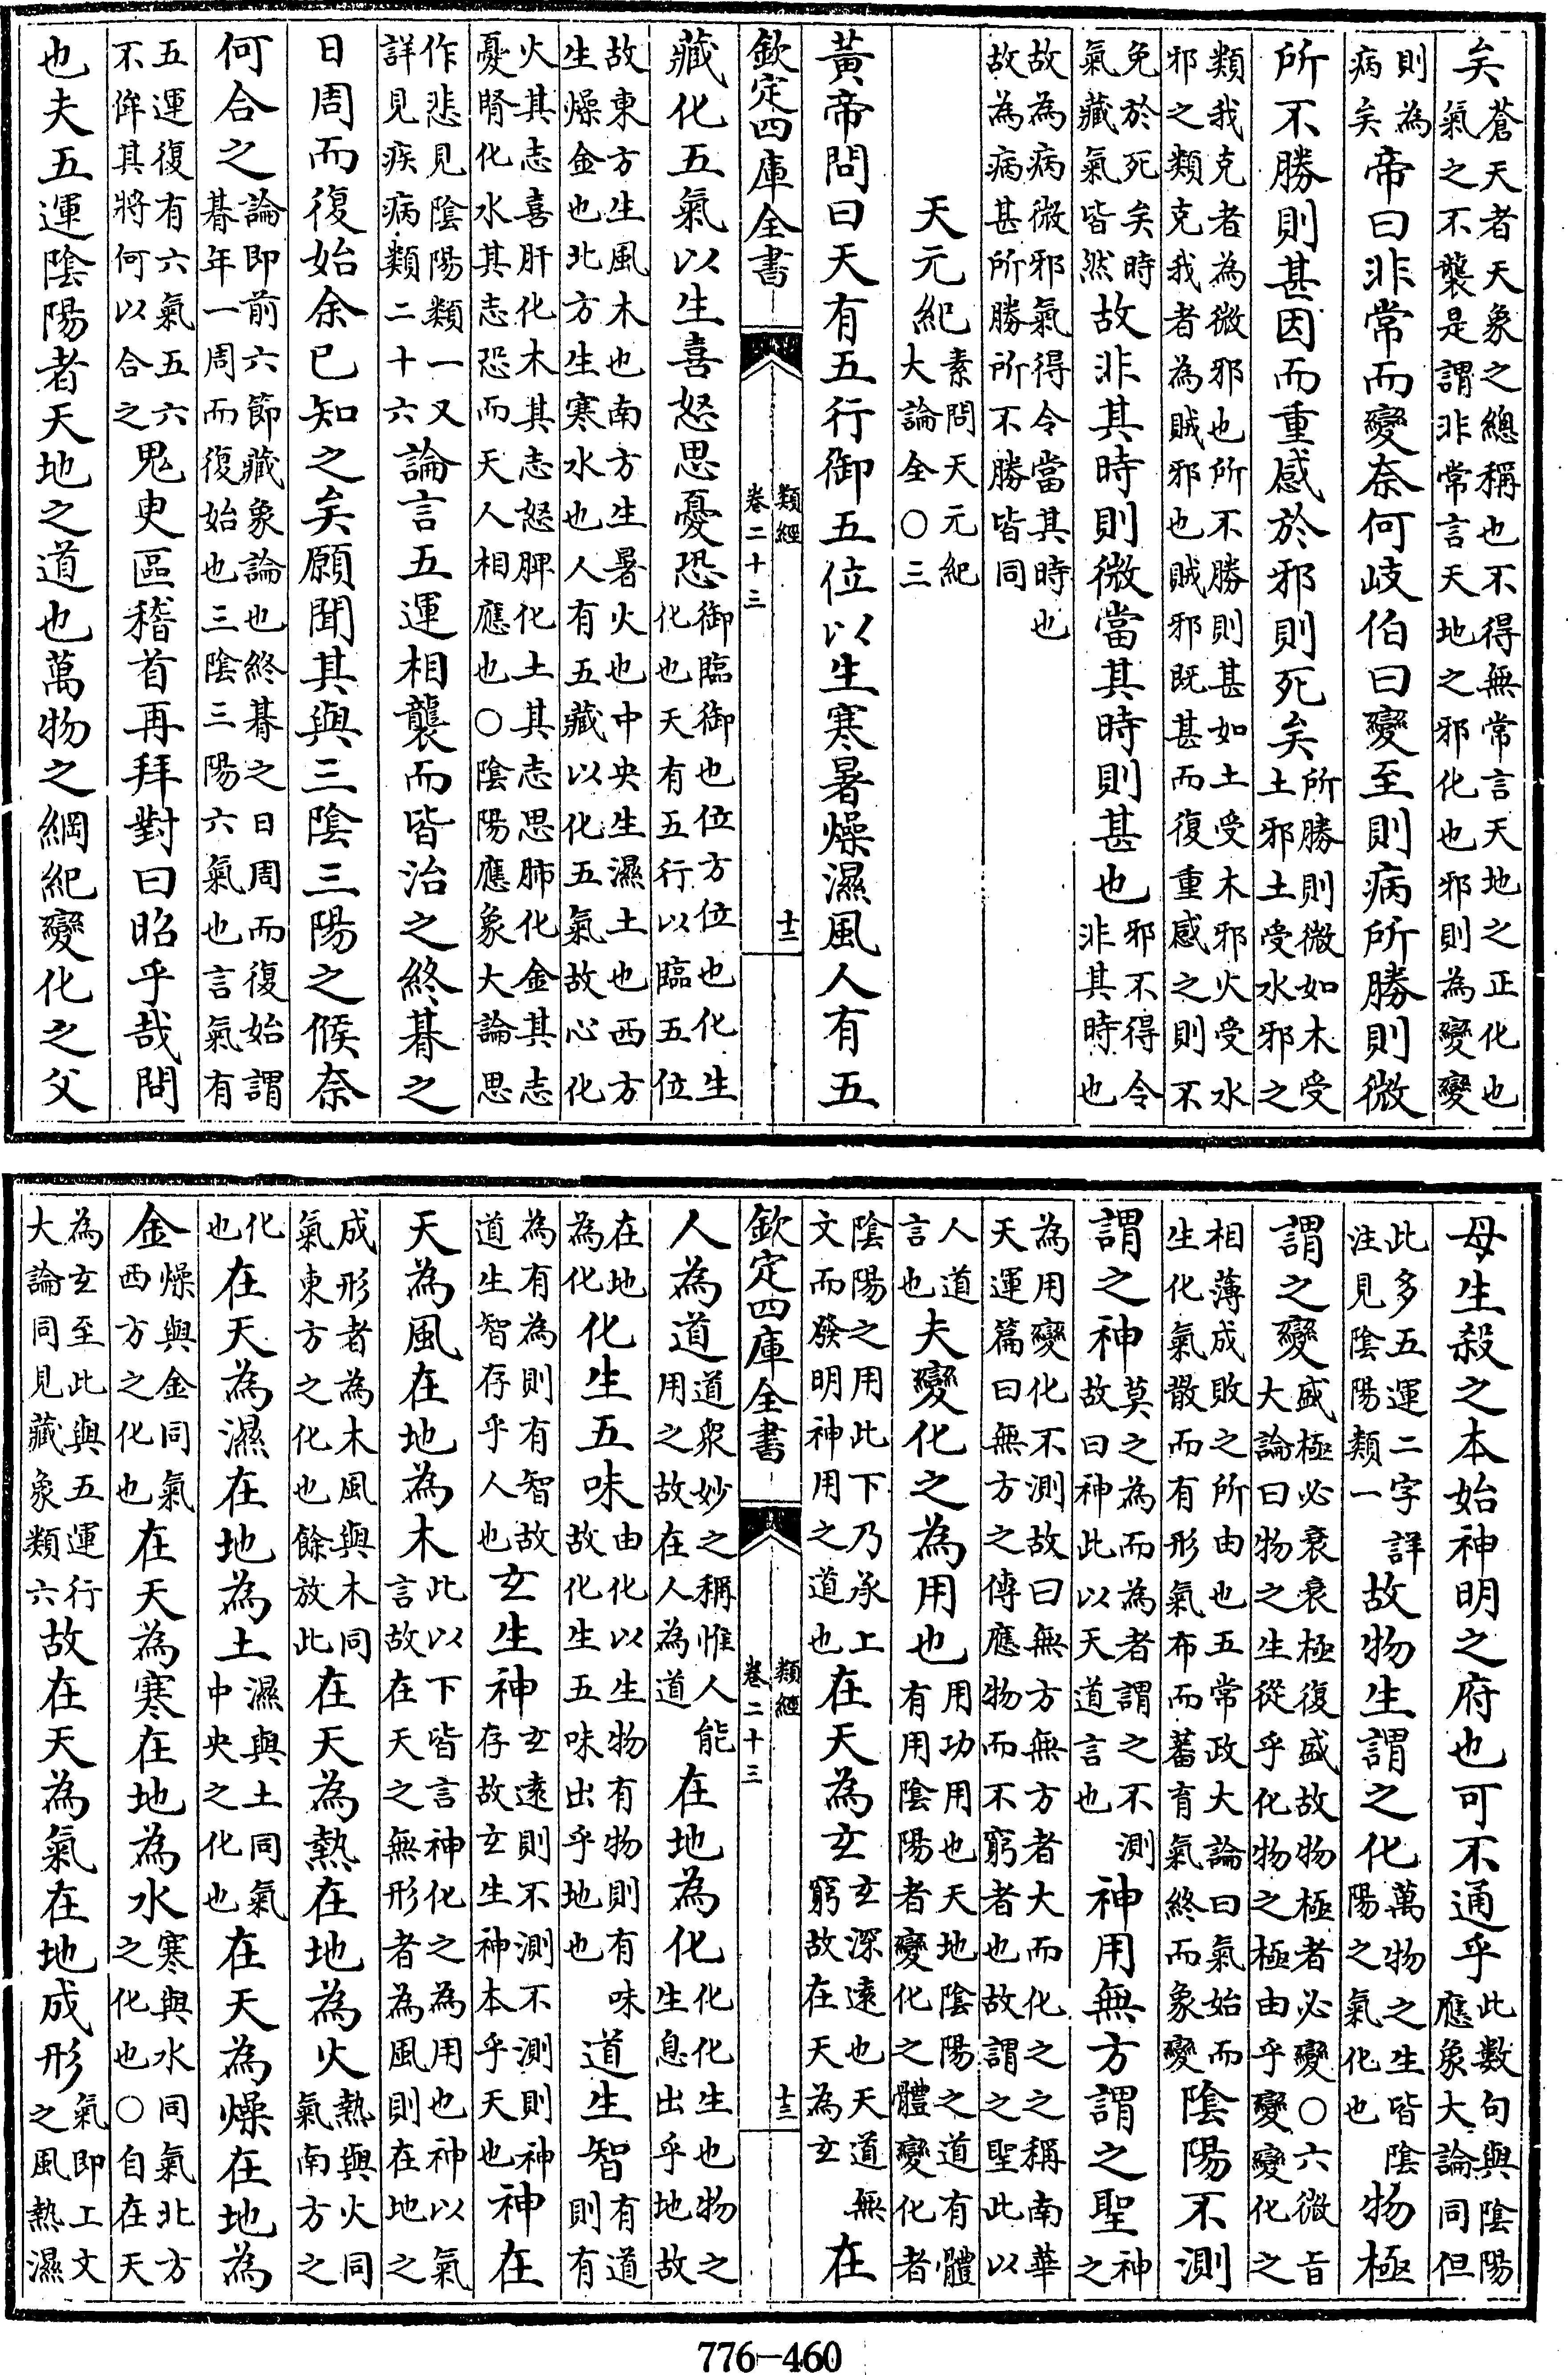 矣蒼天者天象之總稱也不得無常言天地之正化也
氣之不襲是謂非常言天地之邪化也邪則為變變
則為病矣帝曰非常而變奈何岐伯曰變至則病所勝則微
所不勝則甚因而重感於邪則死矣所勝則微如木受土邪土受水邪之
類我克者為微邪也所不勝則甚如土受木邪火受水
邪之類克我者為賊邪也賊邪既甚而復重感之則不
免於死矣時氣藏氣皆然故非其時則微當其時則甚也邪不得令非其時也
故為病微邪氣得令當其時也
故為病甚所勝所不勝皆同
天元紀素問天元紀大論全○三
黃帝問曰天有五行御五位以生寒暑燥濕風人有五
欽定四庫全書 類經 卷二十三 十二
藏化五氣以生喜怒思憂恐御臨御也位方位也化生化也天有五行以臨五位
故東方生風木也南方生暑火也中央生濕土也西方
生燥金也北方生寒水也人有五藏以化五氣故心化
火其志喜肝化木其志怒脾化土其志思肺化金其志
憂腎化水其志恐而天人相應也○陰陽應象大論思
作悲見陰陽類一又詳見疾病類二十六論言五運相襲而皆治之終朞之
日周而復始余已知之矣願聞其與三陰三陽之候奈
何合之論即前六節藏象論也終朞之日周而復始謂朞年一周而復始也三陰三陽六氣也言氣有
五運復有六氣五六不侔其將何以合之鬼臾區稽首再拜對曰昭乎哉問
也夫五運陰陽者天地之道也萬物之綱紀變化之父
母生殺之本始神明之府也可不通乎此數句與陰陽應象大論同但
此多五運二字詳注見陰陽類一故物生謂之化萬物之生皆陰陽之氣化也物極
謂之變盛極必衰衰極復盛故物極者必變○六微旨大論曰物之生從乎化物之極由乎變變化之
相薄成敗之所由也五常政大論曰氣始而生化氣散而有形氣布而蕃育氣終而象變陰陽不測
謂之神莫之為而為者謂之不測故曰神此以天道言也神用無方謂之聖神之
為用變化不測故曰無方無方者大而化之之稱南華
天運篇曰無方之傳應物而不窮者也故謂之聖此以
人道言也夫變化之為用也用功用也天地陰陽之道有體有用陰陽者變化之體變化者
陰陽之用此下乃承上文而發明神用之道也在天為玄玄深遠也天道無窮故在天為玄在
欽定四庫全書 類經 卷二十三 十二
人為道道眾妙之稱惟人能用之故在人為道在地為化化化生也物之生息出乎地故
在地為化化生五味由化以生物有物則有味故化生五味出乎地也道生智有道則有
為有為則有智故道生智存乎人也玄生神玄遠則不測不測則神存故玄生神本乎天也神在
天為風在地為木此以下皆言神化之為用也神以氣言故在天之無形者為風則在地之
成形者為木風與木同氣東方之化也餘放此在天為熱在地為火熱與火同氣南方之
化也在天為濕在地為土濕與土同氣中央之化也在天為燥在地為
金燥與金同氣西方之化也在天為寒在地為水寒與水同氣北方之化也○自在天
為玄至此與五運行大論同見藏象類六故在天為氣在地成形氣即工文之風熱濕
776-460